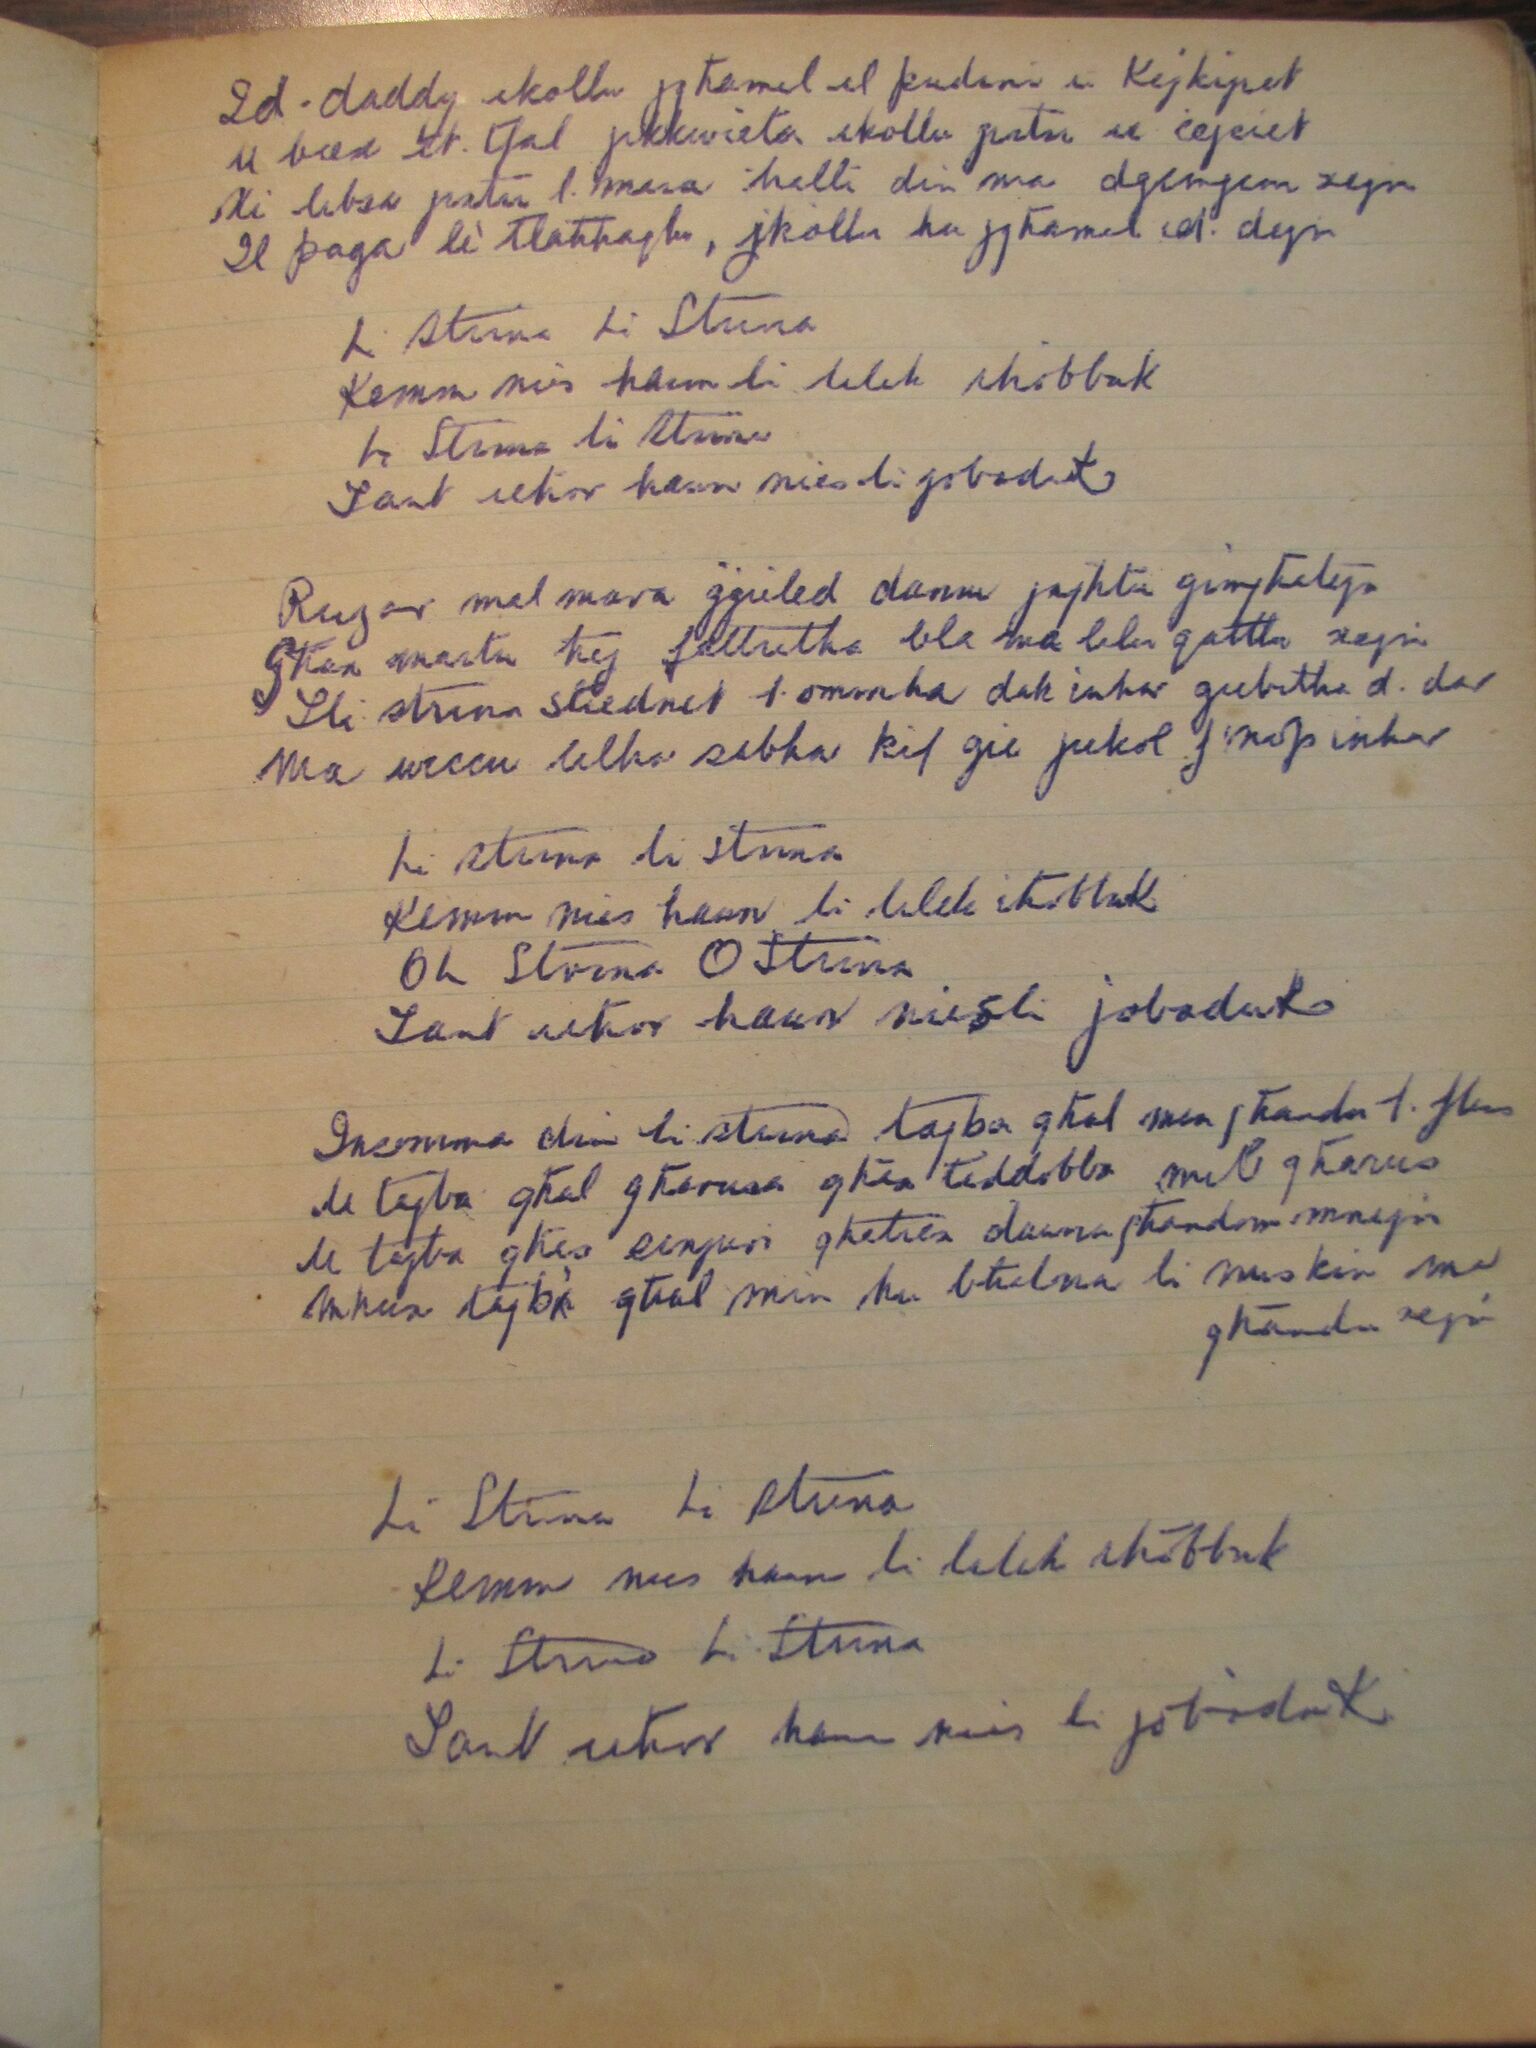 Id-daddy ikollu jghamel il pudina u Kejkijiet
u biex it. tfal jikkwieta ikollu jixtri u cejciet
Xi libsa jixtri l. mara halli din ma dgemgem xejn
Il paga li tlahhaqlu, jkollu hu jghamel id. dejn
Li Strina Li Strina
Kemm nies hawn li lilek ihobbuk
Li Strina li Strina
Izant uhor hawn nies li joboduk
Ruzar mal mara ggieled dannu jaghti gimghatejn
Ghax martu hej lilu qattu xejn
Ili strina stiednet l. ommha dak inhar giebitha d. dar
Ma wiccu lilha sabha kif gie jiekol f'nofs inhar
Li strina li strina
Kemm nies hawn li lilek ihobbuk
Oh Strina O Strina
Izant uhor hawn nies li joboduk
Insomma din li strina tajba ghal min ghandu l. flus
U tajba ghal gharusa ghax tiddobba mil gharus
U tajba ghas sinjuri ghaliex dawna ghandom mnejn
Mhux tajba ghal min hu bhalna li miskin ma
ghandu xejn
Li Strina Li Strina
Kemm nies hawn li lilek ihobbuk
Li Strina Li Strina
Izant uhor hawn nies li joboduk